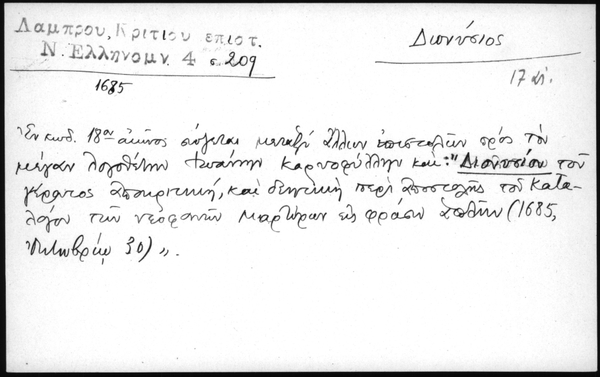 Λαμπρου, Κριτίου επιστ.
Ν. Ελληνομν. 4 σ. 209
1685
Διονύσιος
17 αἰ.
Ἐν κωδ. 18ου αἰῶνος σώζεται μεταξύ ἄλλων ἐπιστολῶν πρός τόν
μέγαν λογοθέτην Ἰωάννην Καρυοφύλλην καί: "Διονυσίου τοῦ
γέροντος ἀποκριτική, καί δεητική περί ἀποστολῆς τοῦ κατα-
λόγου τῶν νεοφανῶν μαρτύρων εἰς φράσιν ἁπλῆν (1685,
Ὀκτωβρίῳ 30)".